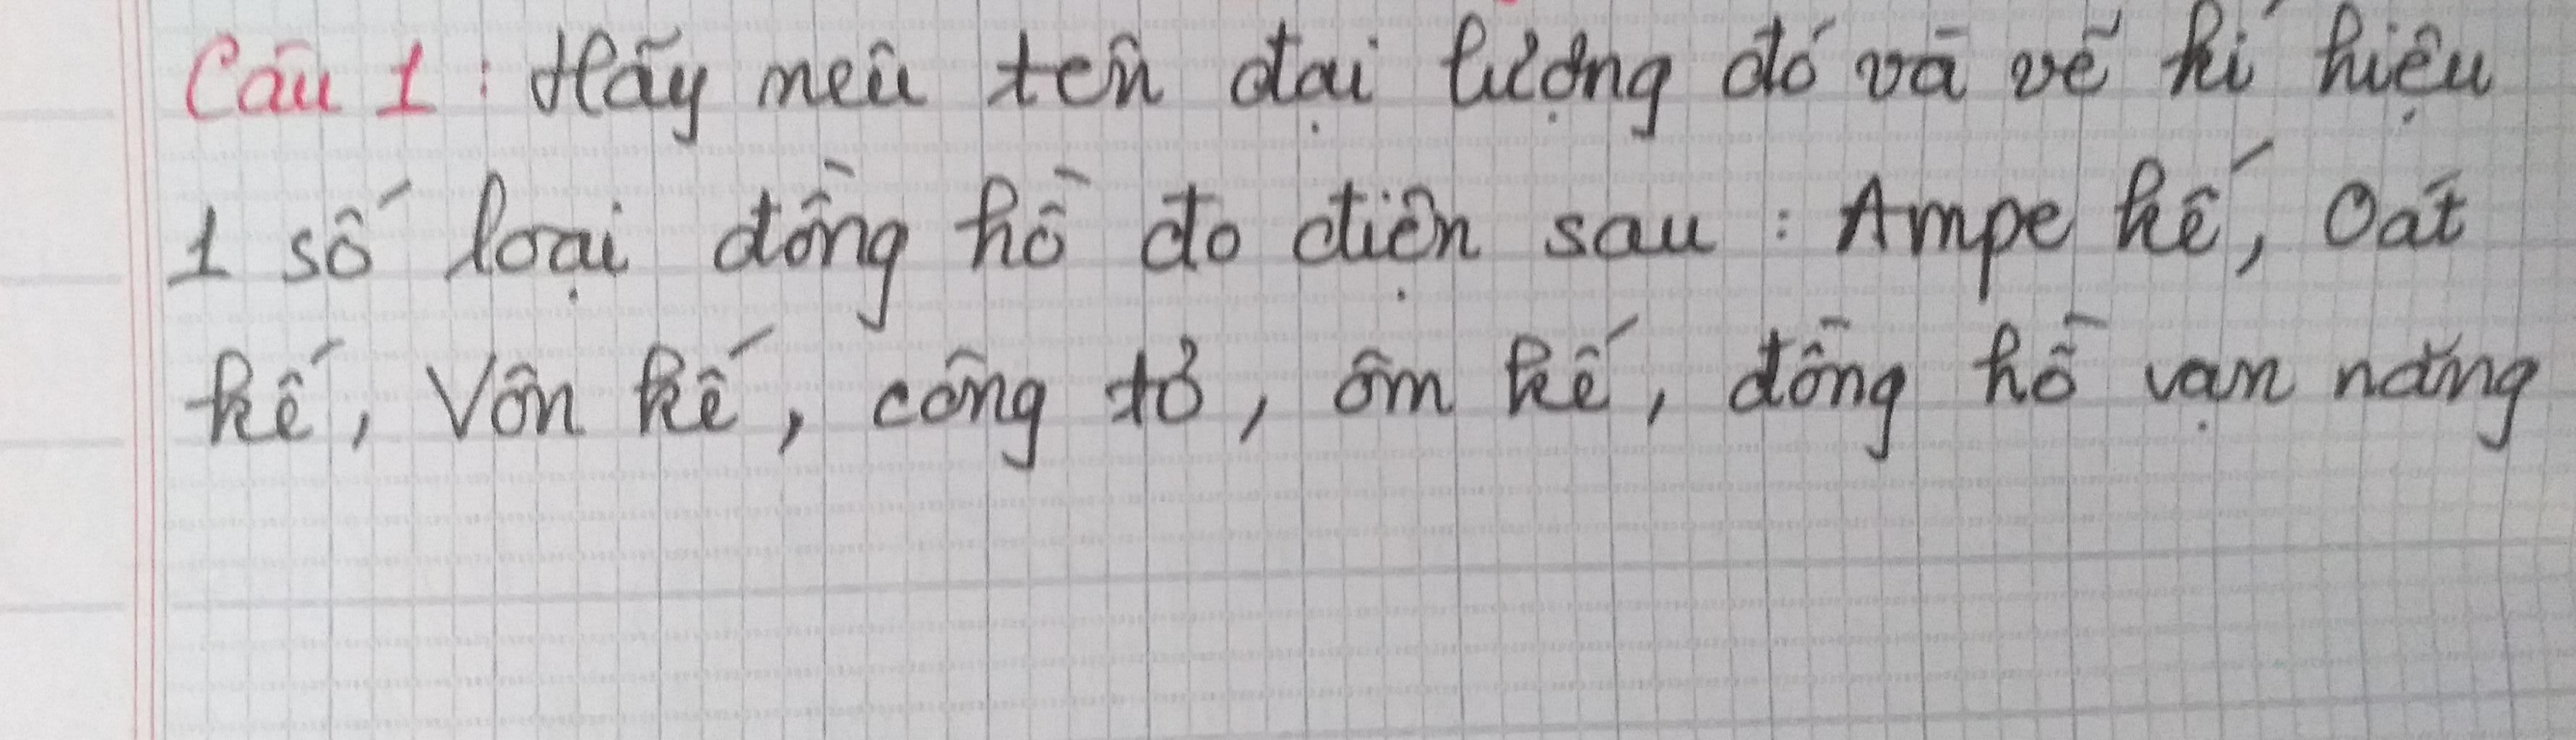 Câu 1: Hãy nêu tên đại lượng đó và vẽ kí hiệu
1 số loại đồng hồ đo điện sau: Ampe kế, Oát
kế, Vôn kế, công tơ, ôm kế, đồng hồ vạn năng